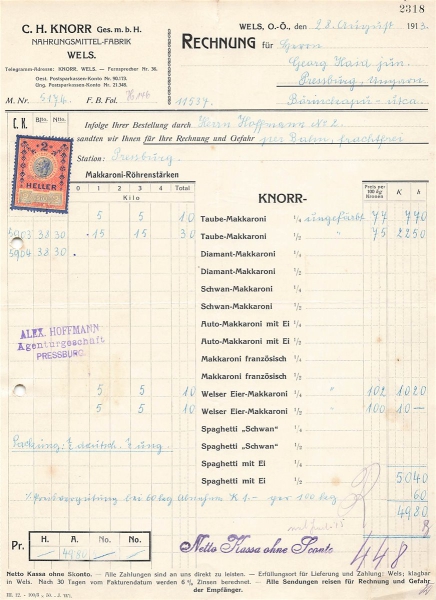 2318
C. H. KNORR Ges. m. b. H.
NAHRUNGSMITTEL-FABRIK
WELS.
Telegramm-Adresse: KNORR, WELS. — Fernsprecher Nr. 36.
Oest. Postsparkassen-Konto Nr. 90.173.
Ung. Postsparkassen-Konto Nr. 21.345.
WELS, O.-Ö., den 28. August 1913.
RECHNUNG für Herrn
Georg Karl jun.
Pressburg, Ungarn
M. Nr. 5174. F. B. Fol. 11537.
C. K. Bllz. Nto.
Infolge Ihrer Bestellung durch Herrn Hoffmann Nr 2.
sandten wir Ihnen für Ihre Rechnung und Gefahr per Bahn, frachtfrei
Station: Pressburg.
2
HELLER
Makkaroni-Röhrenstärken
0 1 2 3 4 Total
Kilo
KNORR-
Preis per 100 kg Kassen K h
5 5 10 Taube-Makkaroni 1/4 ungefärbt 77 7 70
5903 38 30 15 15 30 Taube-Makkaroni 1/2 " 75 22 50
5904 38 30 Diamant-Makkaroni 1/4
Diamant-Makkaroni 1/2
Schwan-Makkaroni 1/4
Schwan-Makkaroni 1/2
Auto-Makkaroni mit Ei 1/4
Auto-Makkaroni mit Ei 1/2
Makkaroni französisch 1/4
Makkaroni französisch 1/2
ALEX. HOFFMANN
Agenturgeschäft
PRESSBURG.
5 5 10 Welser Eier-Makkaroni 1/4 " 102 10 20
5 5 10 Welser Eier-Makkaroni 1/2 " 100 10 —
Spaghetti „Schwan" 1/4
Packung: 1/2 deutsch, 1/2 ung. Spaghetti „Schwan" 1/2
Spaghetti mit Ei 1/4
Spaghetti mit Ei 1/2 50 40
bei 60 kg K 1.— per 100 kg 60
49 80
Pr. H. A. No. No.
49.80
Netto Kassa ohne Sconto
448
Netto Kassa ohne Skonto. — Alle Zahlungen sind an uns direkt zu leisten. — Erfüllungsort für Lieferung und Zahlung: Wels; klagbar
in Wels. Nach 30 Tagen vom Fakturendatum werden 6 % Zinsen berechnet. — Alle Sendungen reisen für Rechnung und Gefahr
der Empfänger.